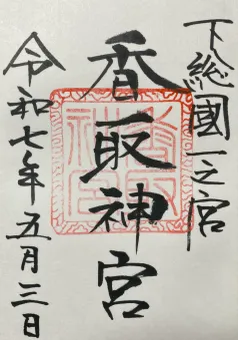 下総國一之宮
香取神宮
令和七年五月三日